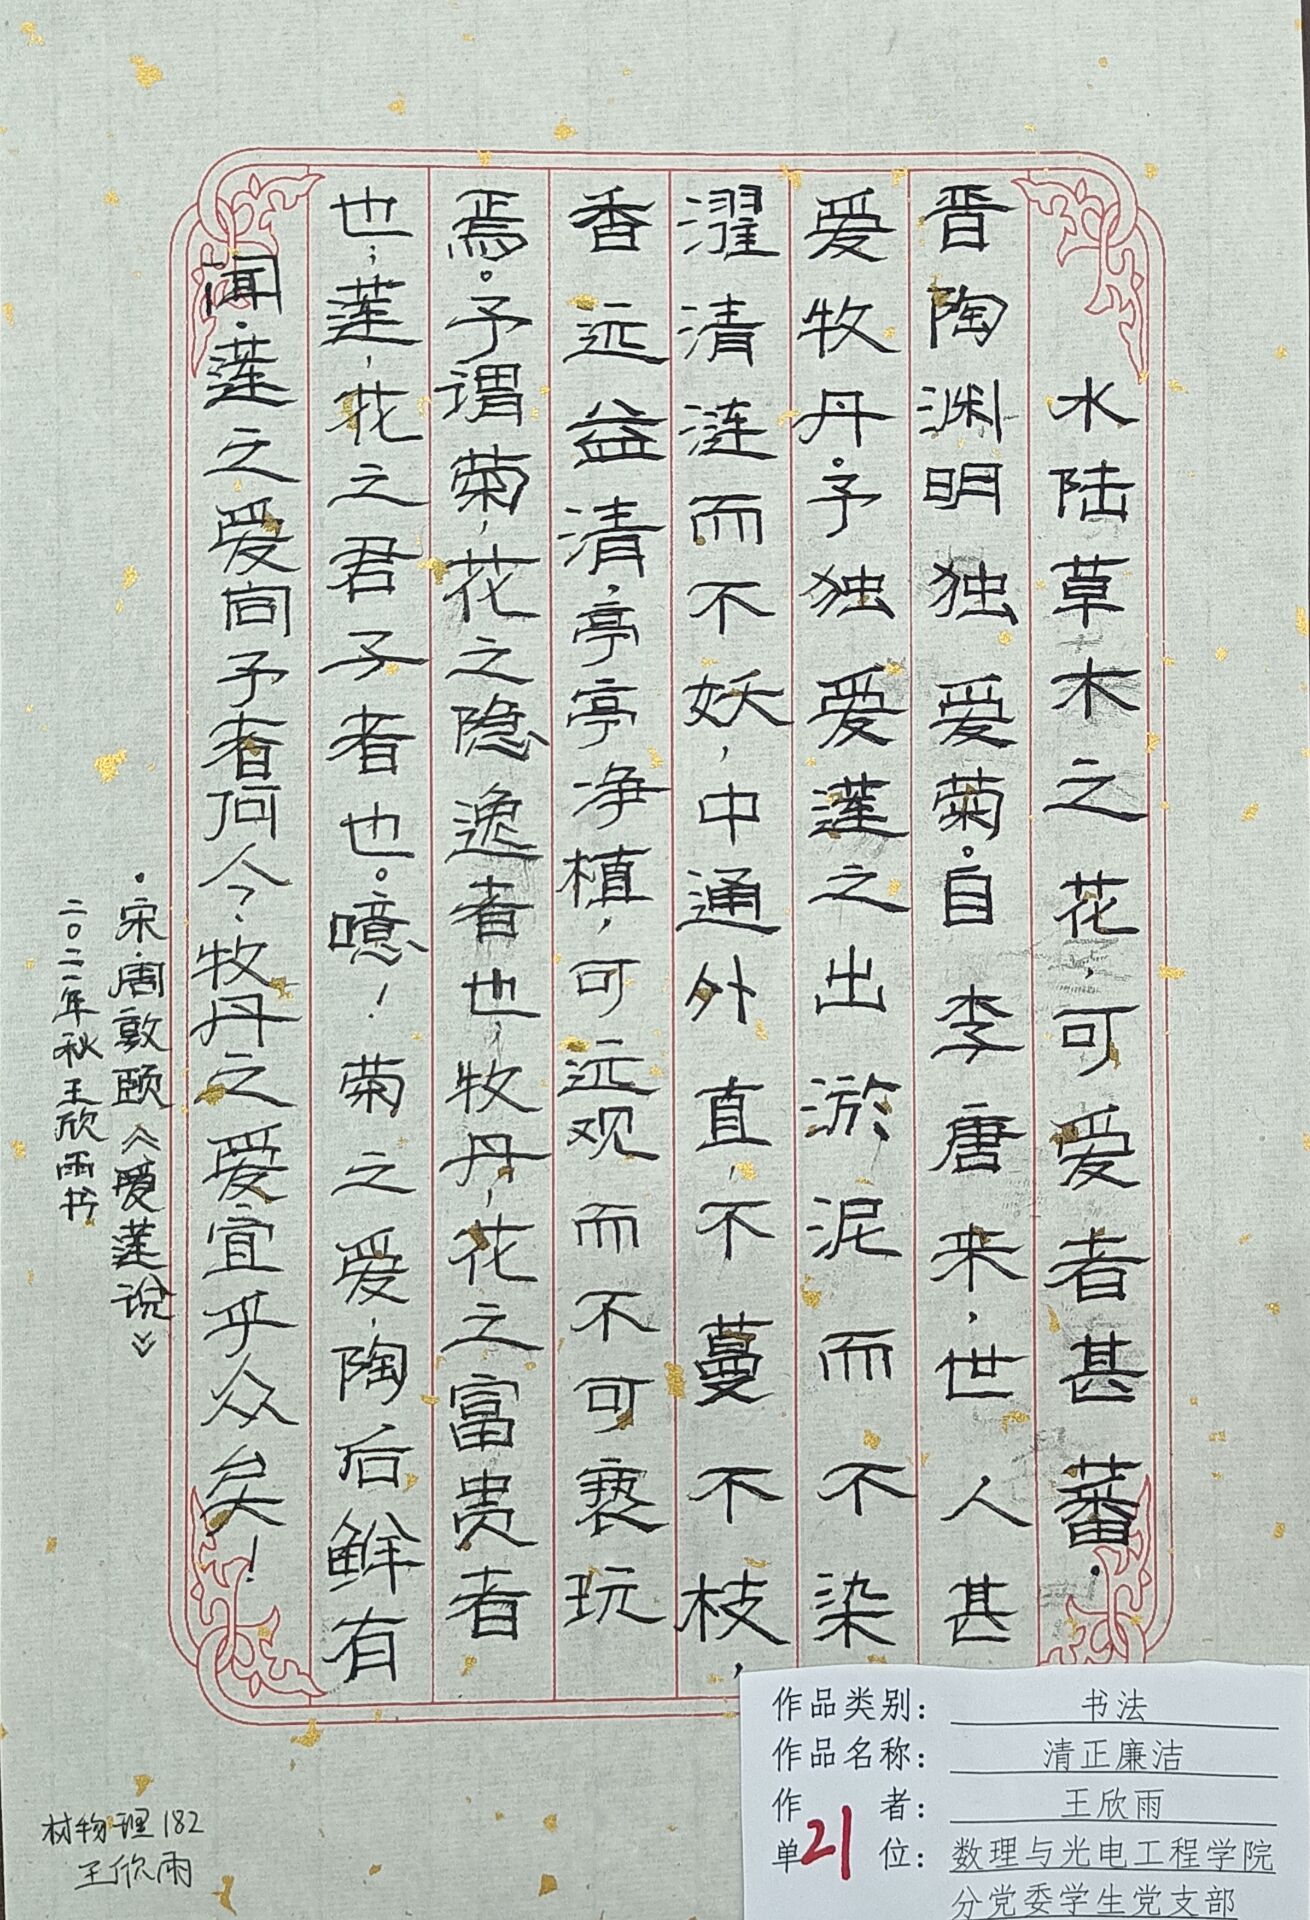 水陆草木之花，可爱者甚蕃。
晋陶渊明独爱菊。自李唐来，世人甚
爱牧丹。予独爱莲之出淤泥而不染
濯清涟而不妖，中通外直，不蔓不枝，
香远益清，亭亭净植，可远观而不可亵玩
焉。予谓菊，花之隐逸者也，牧丹，花之富贵者
也，莲，花之君子者也。噫！菊之爱，陶后鲜有
闻。莲之爱同予者何人、牧丹之爱宜乎众矣！
·宋·周敦颐《爱莲说》
二〇二一年秋王欣雨书
材物理182
王欣雨
作品类别：书法
作品名称：清正廉洁
作者：王欣雨
单位：数理与光电工程学院
分党委学生党支部
21